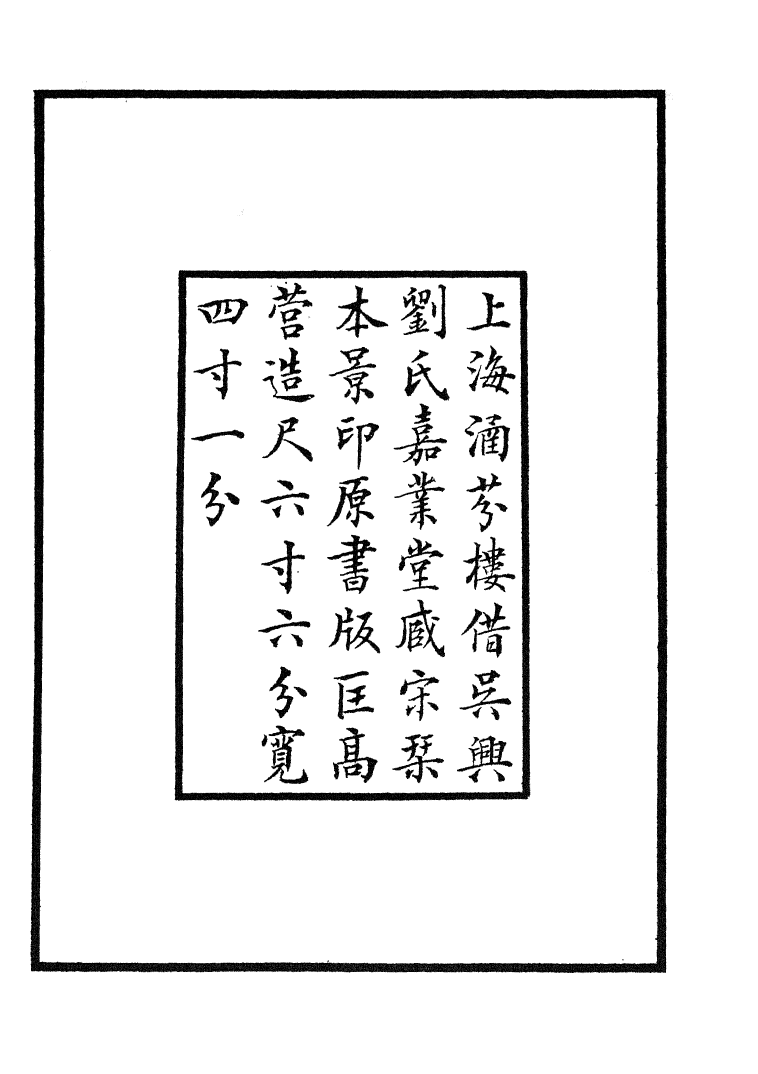 上海涵芬樓借吳興
劉氏嘉業堂臧宋栞
本景印原書版匡高
營造尺六寸六分寬
四寸一分